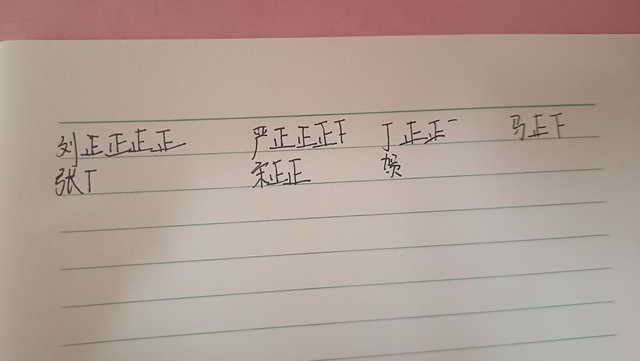 刘正正正正 严正正正下 丁正正一 马正下
张丅 宋正正 贺